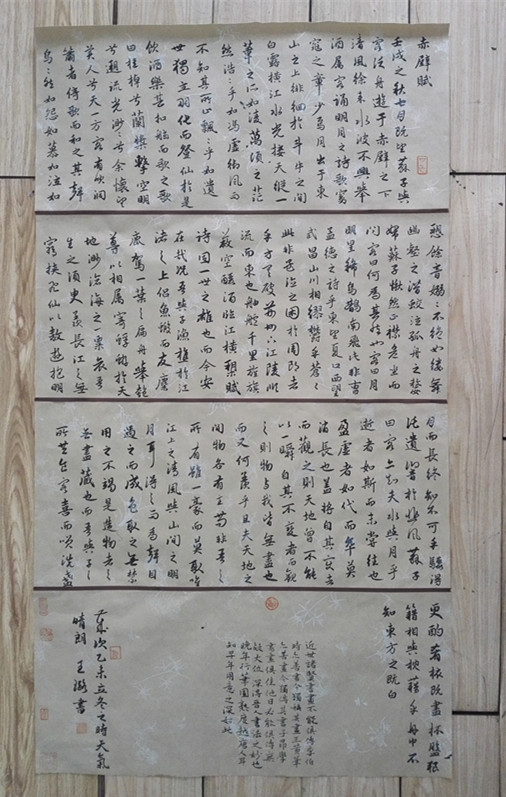 赤壁賦
壬戌之秋七月既望蘇子與
客泛舟遊于赤壁之下
清風徐來水波不興舉
酒屬客誦明月之詩歌窈
窕之章少焉月出于東
山之上徘徊於斗牛之間
白露橫江水光接天縱一
葦之所如凌萬頃之茫
然浩〻乎如馮虛御風而
不知其所止飄〻乎如遺
世獨立羽化而登仙於是
飲酒樂甚扣舷而歌之歌
曰桂棹兮蘭槳擊空明
兮遡流光渺〻兮余懷望
美人兮天一方客有吹洞
簫者倚歌而和之其聲
烏〻然如怨如慕如泣如
愬餘音嫋〻不絕如縷舞
幽壑之潛蛟泣孤舟之嫠
婦蘇子愀然正襟危坐而
問客曰何為其然也客曰月
明星稀烏鵲南飛此非曹
孟德之詩乎東望夏口西望
武昌山川相繆鬱乎蒼〻
此非孟德之困於周郎者
乎方其破荊州下江陵順
流而東也舳艫千里旌旗
蔽空釃酒臨江橫槊賦
詩固一世之雄也而今安
在哉況吾與子漁樵於江
渚之上侶魚蝦而友麋
鹿駕一葉之扁舟舉匏
尊以相屬寄蜉蝣於天
地渺滄海之一粟哀吾
生之須臾羨長江之無
窮挾飛仙以遨遊抱明
月而長終知不可乎驟得
託遺響於悲風蘇子
曰客亦知夫水與月乎
逝者如斯而未嘗往也
盈虛者如代而卒莫
消長也蓋將自其變者
而觀之則天地曾不能
以一瞬自其不變者而觀
之則物與我皆無盡也
而又何羨乎且夫天地之
間物各有主苟非吾之
所有雖一毫而莫取惟
江上之清風與山間之明
月耳得之而為聲目
遇之而成色取之無禁
用之不竭是造物者之
無盡藏也而吾與子之
所共食客喜而笑洗盞
更酌肴核既盡杯盤狼
籍相與枕藉乎舟中不
知東方之既白
歲次乙未立冬之時天氣
晴朗 王 書